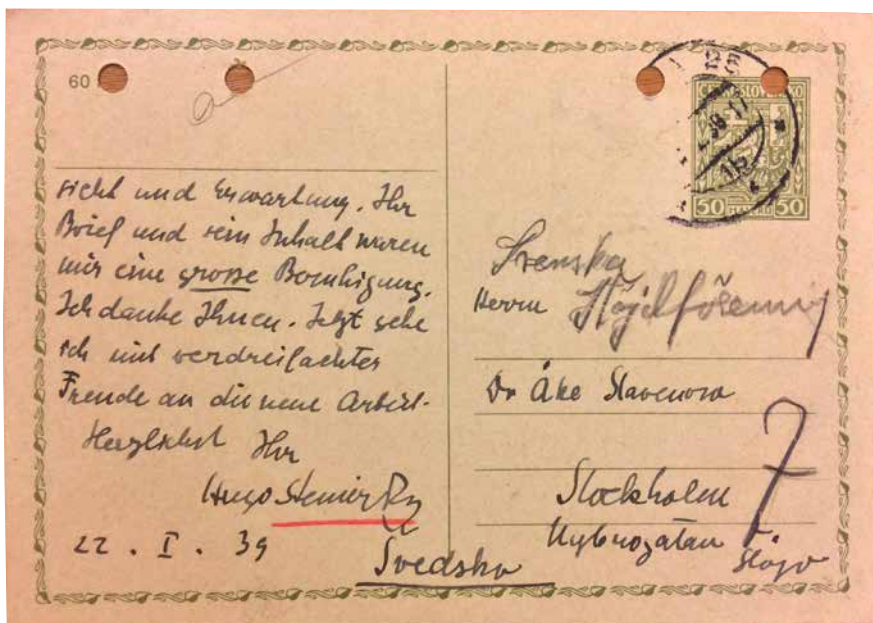 60
ČESKOSLOVENSKO
50 50
sicht und Erwartung. Ihr
Brief und sein Inhalt waren
mir eine große Beruhigung.
Ich danke Ihnen. Jetzt gehe
ich mit verdreifachter
Freude an die neue Arbeit.
Herzlichst Ihr
Hugo Steiner Prg
22. I. 39
Svenska
Herrn Slöjdförening
Dr Åke Stavenow
Stockholm 7
Nybrogatan
Švedsko